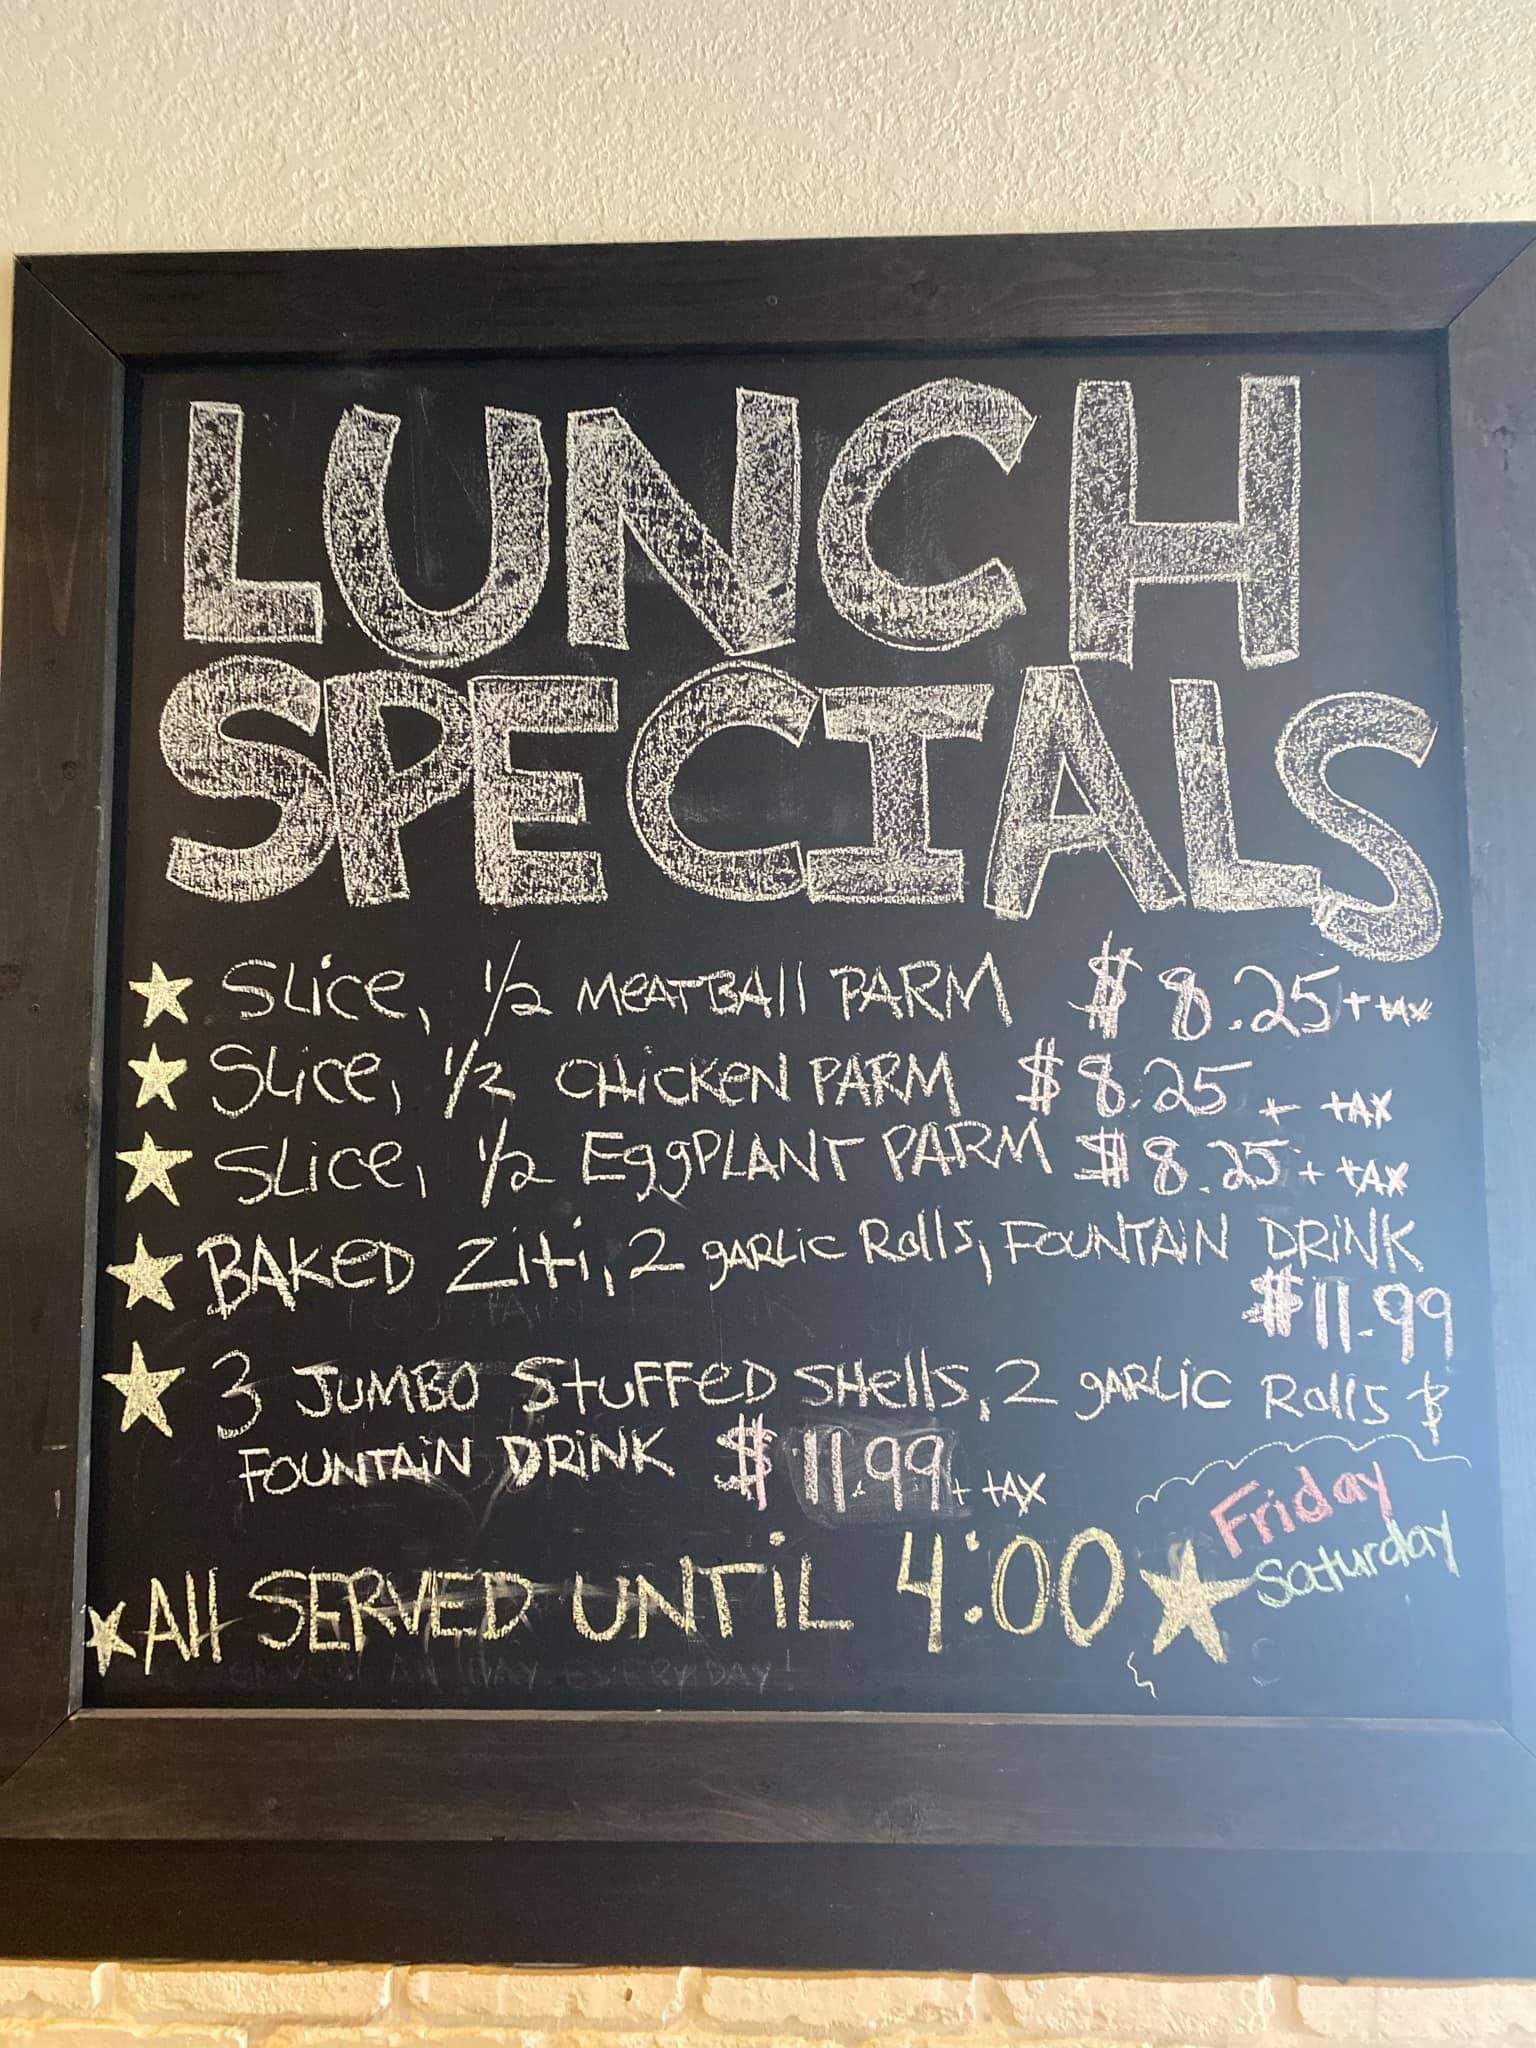 LUNCH
SPECIALS
SLice, 1/2 MeATBAll PARM $8.25 + tAX
SLice, 1/2 CHicKeN PARM $8.25 + tAX
SLice, 1/2 EggPLANT PARM $8.25 + tAX
BAKeD Ziti, 2 gARLic Rolls, FOUNTAiN DRiNK
$11.99
3 JUMBO StuFFeD SHells, 2 gARLic Rolls &
FOUNTAiN DRiNK $11.99 + tAX
Friday
All SERVED UNTiL 4:00 Saturday